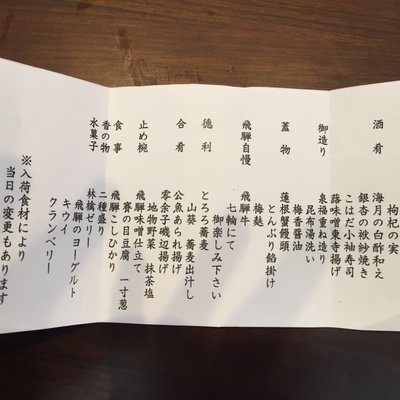 枸杞の実
酒肴 海月の白酢和え
銀杏の袱紗焼き
こはだ小袖寿司
蕗味噌東寺揚げ
御造り 泉福重ね造り
昆布湯洗い
梅香醤油
蓋物 蓮根蟹饅頭
とんぶり餡掛け
梅麩
飛騨自慢 飛騨牛
七輪にて
御楽しみ下さい
徳利 とろろ蕎麦
山葵 蕎麦出汁し
合肴 公魚あられ揚げ
零余子磯辺揚げ
地物野菜 抹茶塩
止め椀 飛騨味噌仕立て
賽の目豆腐 一寸葱
食事 飛騨こしひかり
香の物 二種盛り
水菓子 林檎ゼリー
飛騨のヨーグルト
キウイ
クランベリー
※入荷食材により
当日の変更もあります